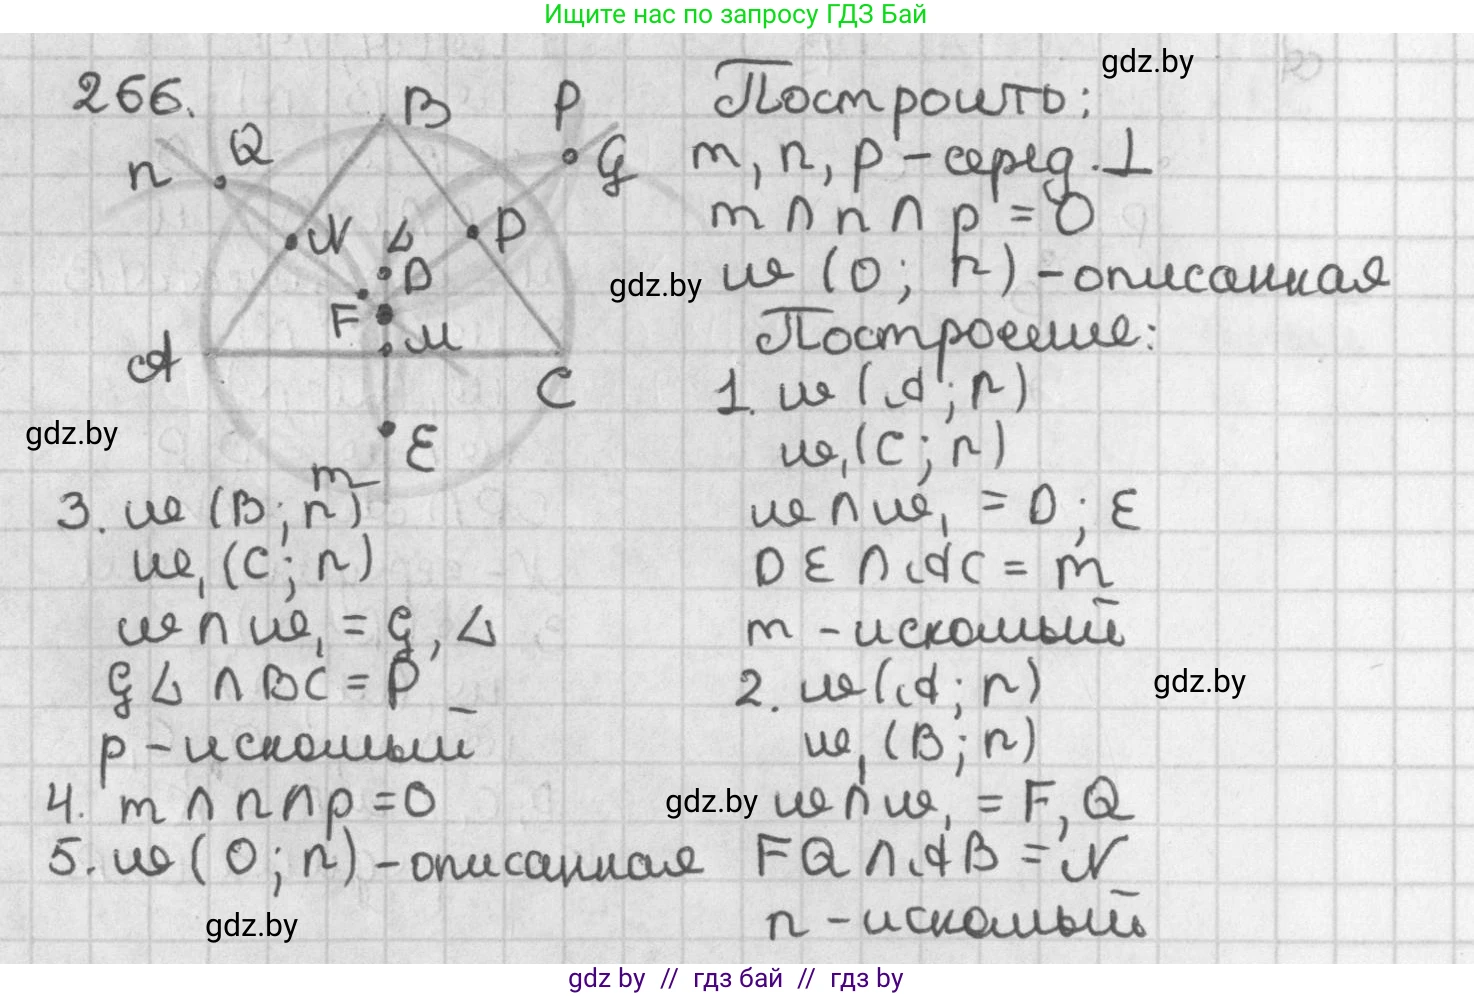 Ищите нас по запросу ГДЗ Бай
266.
B
P
Q
n
G
N
L
P
D
F
M
A
C
E
m
gdz.by
Построить:
m, n, p - серед. ⊥
m ∩ n ∩ p = O
gdz.by
ω (O; r) - описанная
Построение:
1. ω (A; r)
ω₁ (C; r)
ω ∩ ω₁ = D; E
DE ∩ AC = m
m - искомый
2. ω (A; r)
gdz.by
ω₁ (B; r)
ω ∩ ω₁ = F, Q
FQ ∩ AB = N
n - искомый
gdz.by
3. ω (B; r)
ω₁ (C; r)
ω ∩ ω₁ = G, L
GL ∩ BC = P
p - искомый
4. m ∩ n ∩ p = O
gdz.by
5. ω (O; r) - описанная
gdz.by
gdz by // гдз бай // гдз by